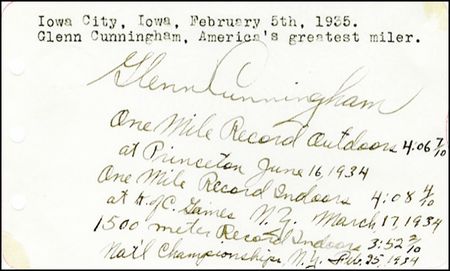 Iowa City, Iowa, February 5th, 1935.
Glenn Cunningham, America's greatest miler.
Glenn Cunningham
One Mile Record Outdoors 4:06 7/10
at Princeton June 16, 1934
One Mile Record Indoors 4:08 4/10
at K. of C. Games N.Y. March 17, 1934
1500 meter Record Indoors 3:52 2/10
Nat'l Championships, N.Y. Feb. 25, 1934